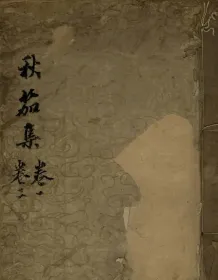 秋茄集
卷一
卷二